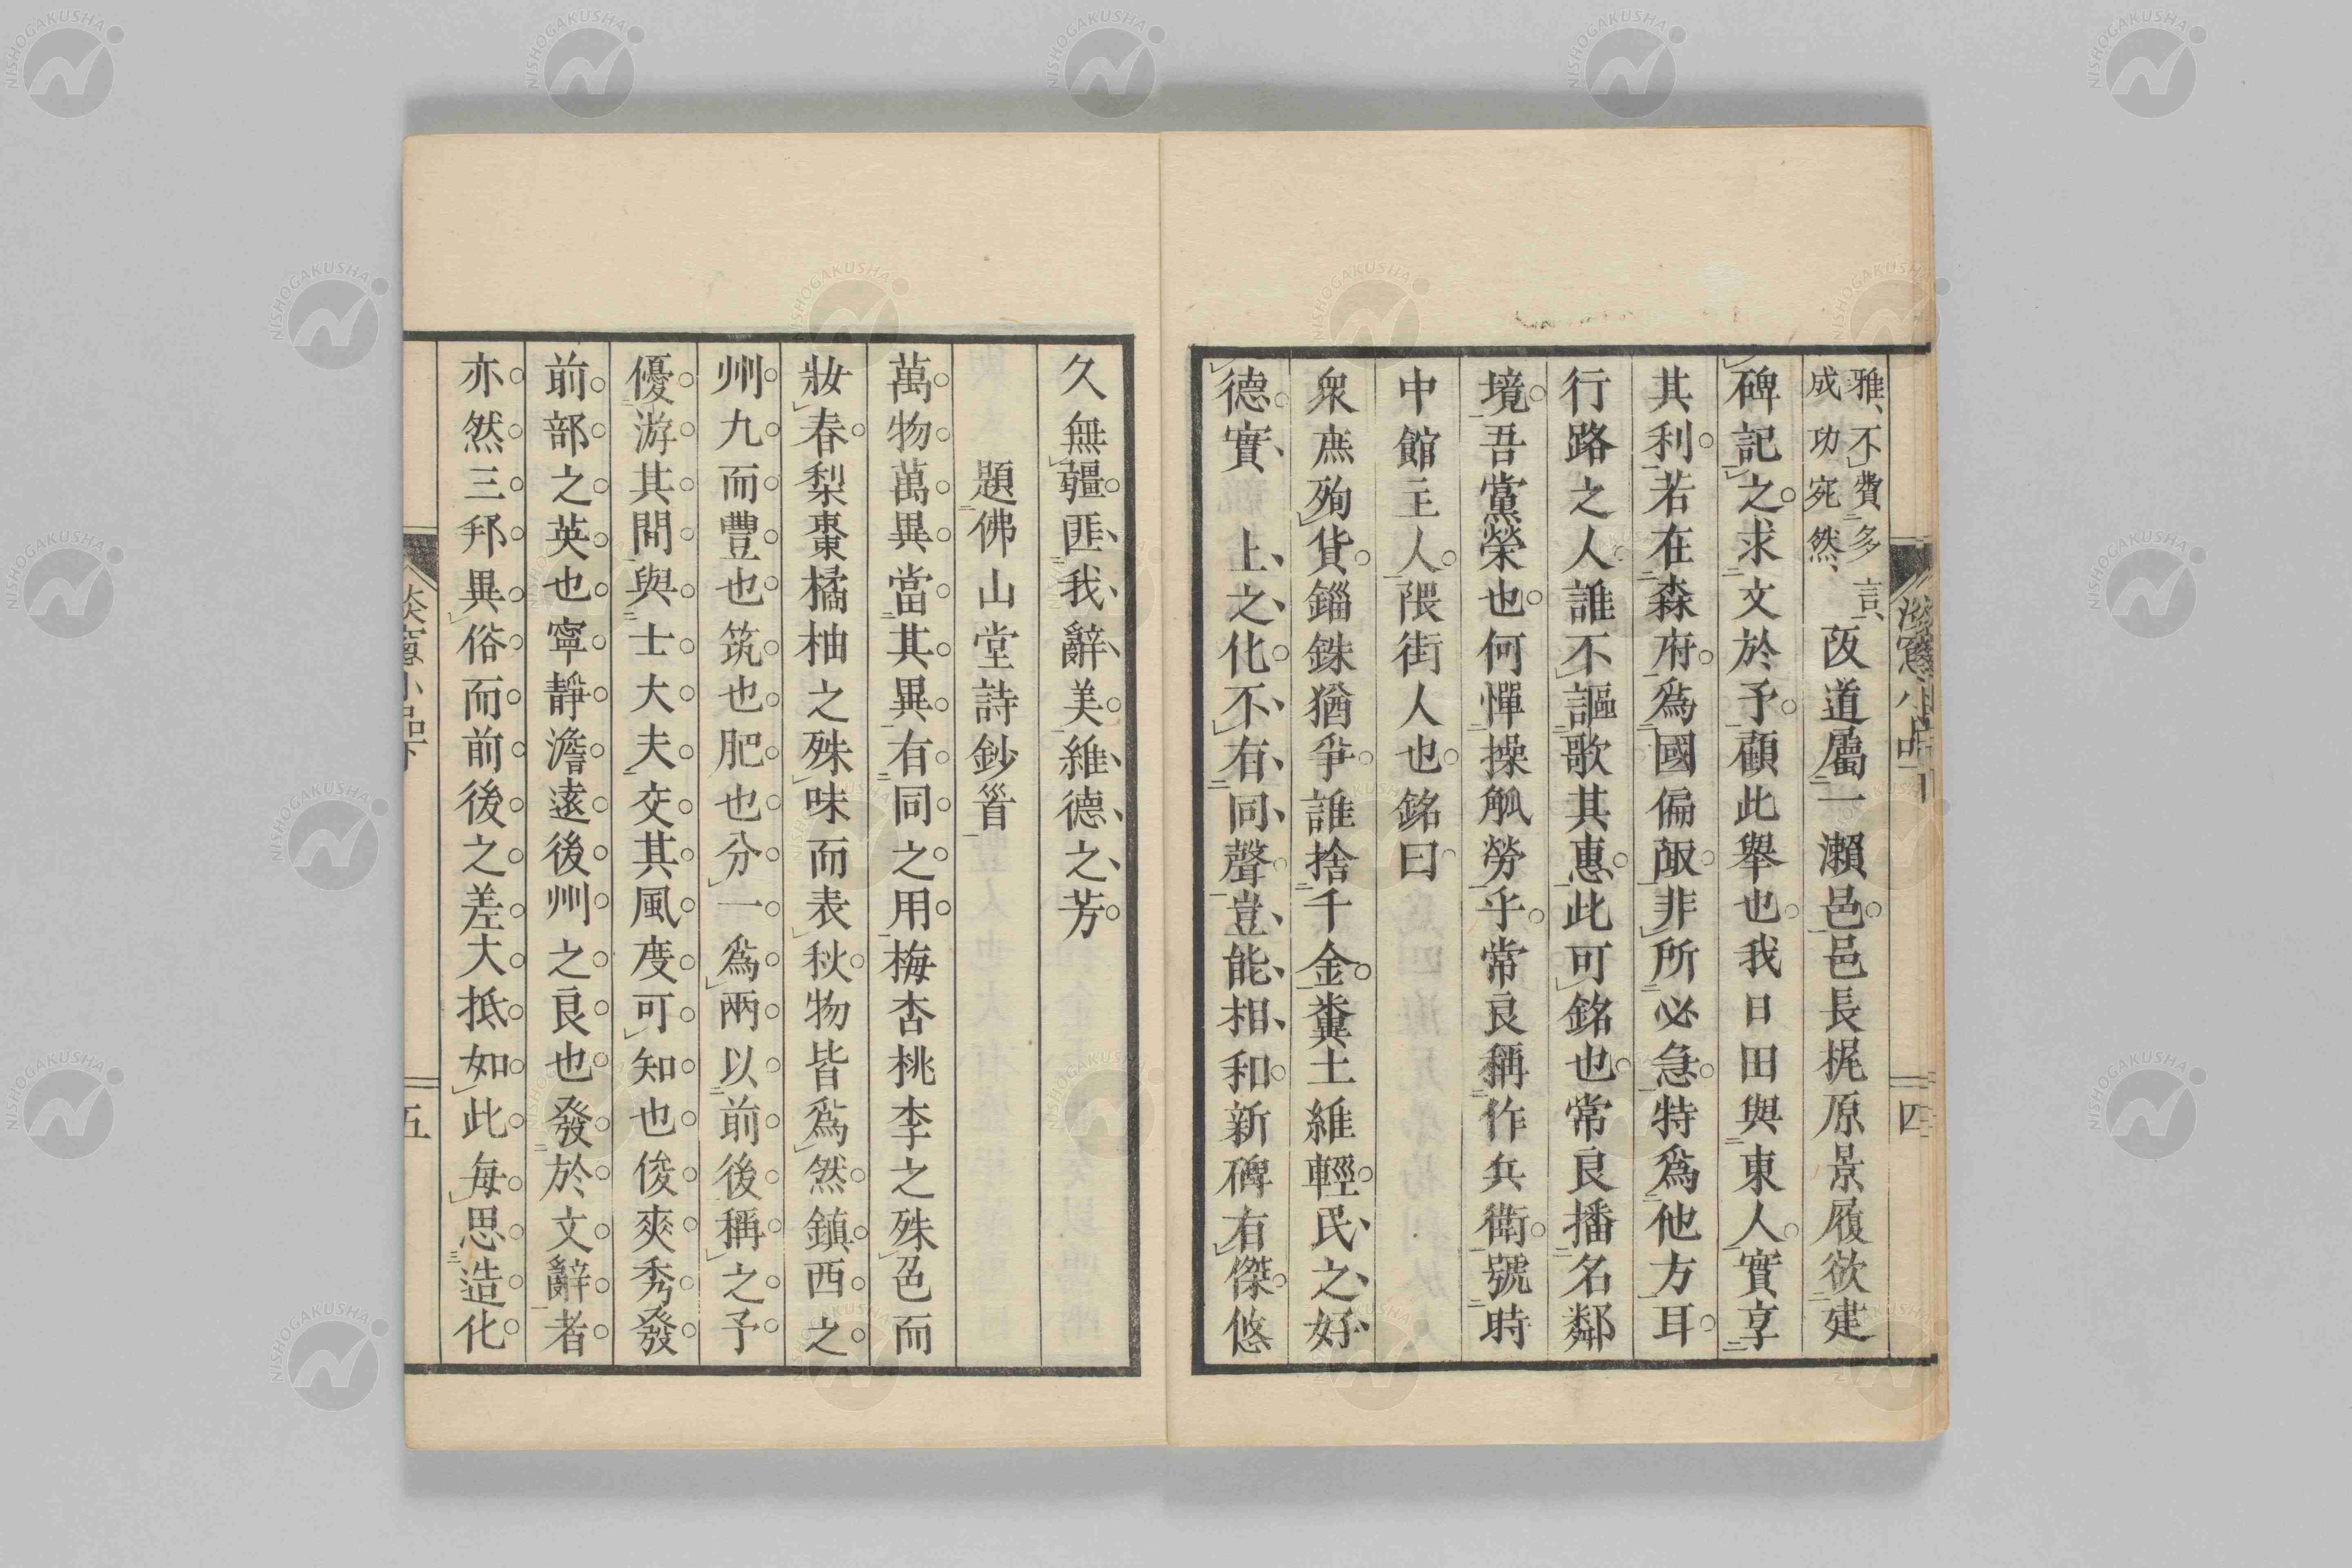 雅、不費多言、
成功宛然、
苃道屬一瀨邑邑長梶原景履欲建
碑記之求文於予顧此舉也我日田與東人實享
其利若在森府爲國偏陬非所必急特爲他方耳
行路之人誰不謳歌其惠此可銘也常良播名鄰
境吾黨榮也何憚操觚勞乎常良稱作兵衛號時
中館主人隈街人也銘曰
衆庶殉貨錙銖猶爭誰捨千金糞土維輕民之好
德實上之化不有同聲豈能相和新碑有傑悠
四
久無疆匪我辭美維德之芳
題佛山堂詩鈔首
萬物萬異當其異有同之用梅杏桃李之殊色而
妝春梨棗橘柚之殊味而表秋物皆爲然鎮西之
州九而豐也筑也肥也分一爲兩以前後稱之予
優游其間與士大夫交其風度可知也俊爽秀發
前部之英也寧靜澹遠後州之良也發於文辭者
亦然三邦異俗而前後之差大抵如此每思造化
窻小品下
五
NISHOGAKUSHA